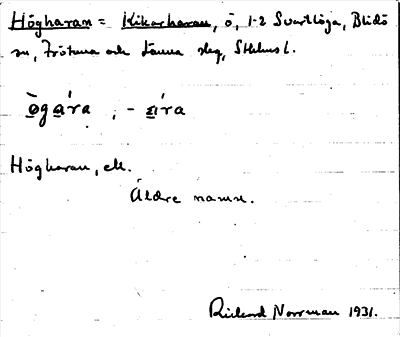 Högharan = Kikarharan, ö, 1-2 Svartlöga, Blidö
sn, Frötuna och Länna slg, Sthlms l.
ògára, -
Högharan, ell.
Äldre namn.
Rickard Norrman 1931.